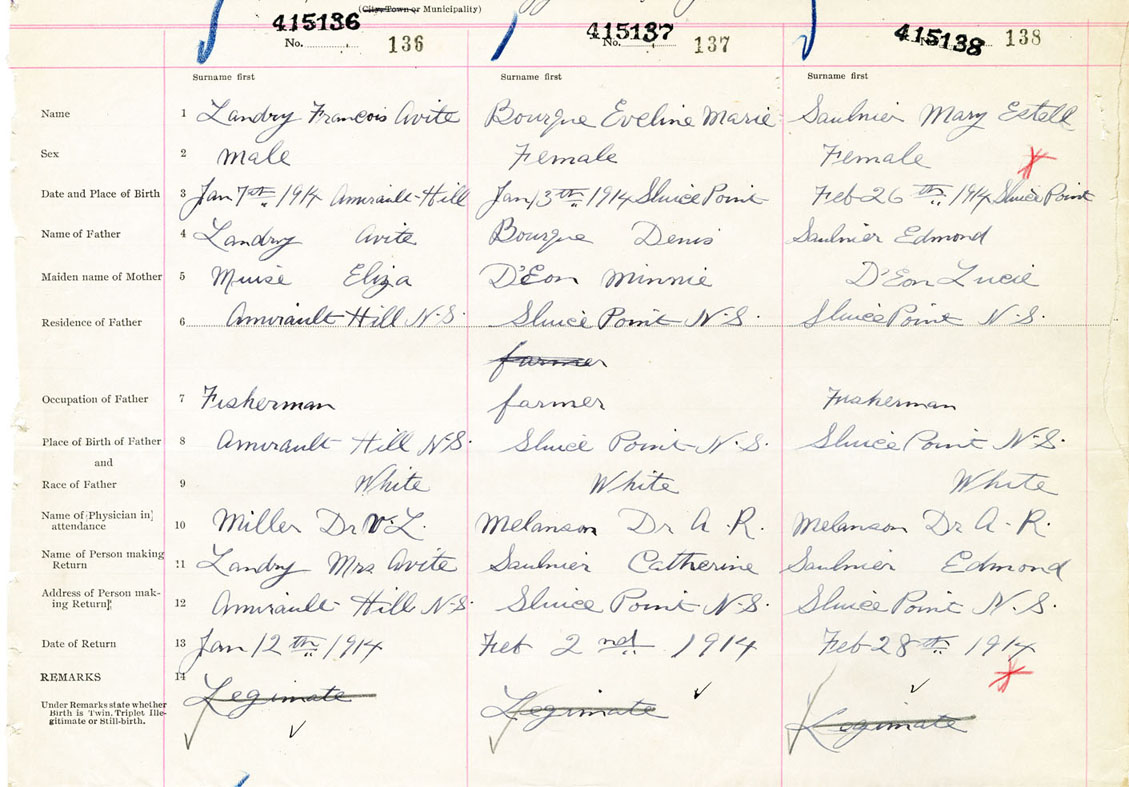 (City, Town or Municipality)
415136 415137 415138
No. 136 No. 137 No. 138
Surname first Surname first Surname first
Name 1 Landry Francois Avite Bourque Eveline Marie Saulnier Mary Estell
Sex 2 Male Female Female
Date and Place of Birth 3 Jan 7th 1914 Amirault-Hill Jan 13th 1914 Sluice Point Feb 26th 1914 Sluice Point
Name of Father 4 Landry Avite Bourque Denis Saulnier Edmond
Maiden name of Mother 5 Muise Eliza D'Eon Minnie D'Eon Lucie
Residence of Father 6 Amirault Hill N.S. Sluice Point N.S. Sluice Point N.S.
farmer
Occupation of Father 7 Fisherman farmer Fisherman
Place of Birth of Father 8 Amirault Hill N.S. Sluice Point N.S. Sluice Point N.S.
and
Race of Father 9 White White White
Name of [Physician in]
attendance 10 Miller Dr V. L. Melanson Dr A. R. Melanson Dr A. R.
Name of Person making
Return 11 Landry Mrs Avite Saulnier Catherine Saulnier Edmond
Address of Person mak-
ing Return] 12 Amirault Hill N.S. Sluice Point N.S. Sluice Point N.S.
Date of Return 13 Jan 12th 1914 Feb 2nd 1914 Feb 28th 1914
REMARKS 14 Legimate Legimate Legimate
Under Remarks state whether
Birth is Twin, Triplet Ille-
gitimate or Still-birth.